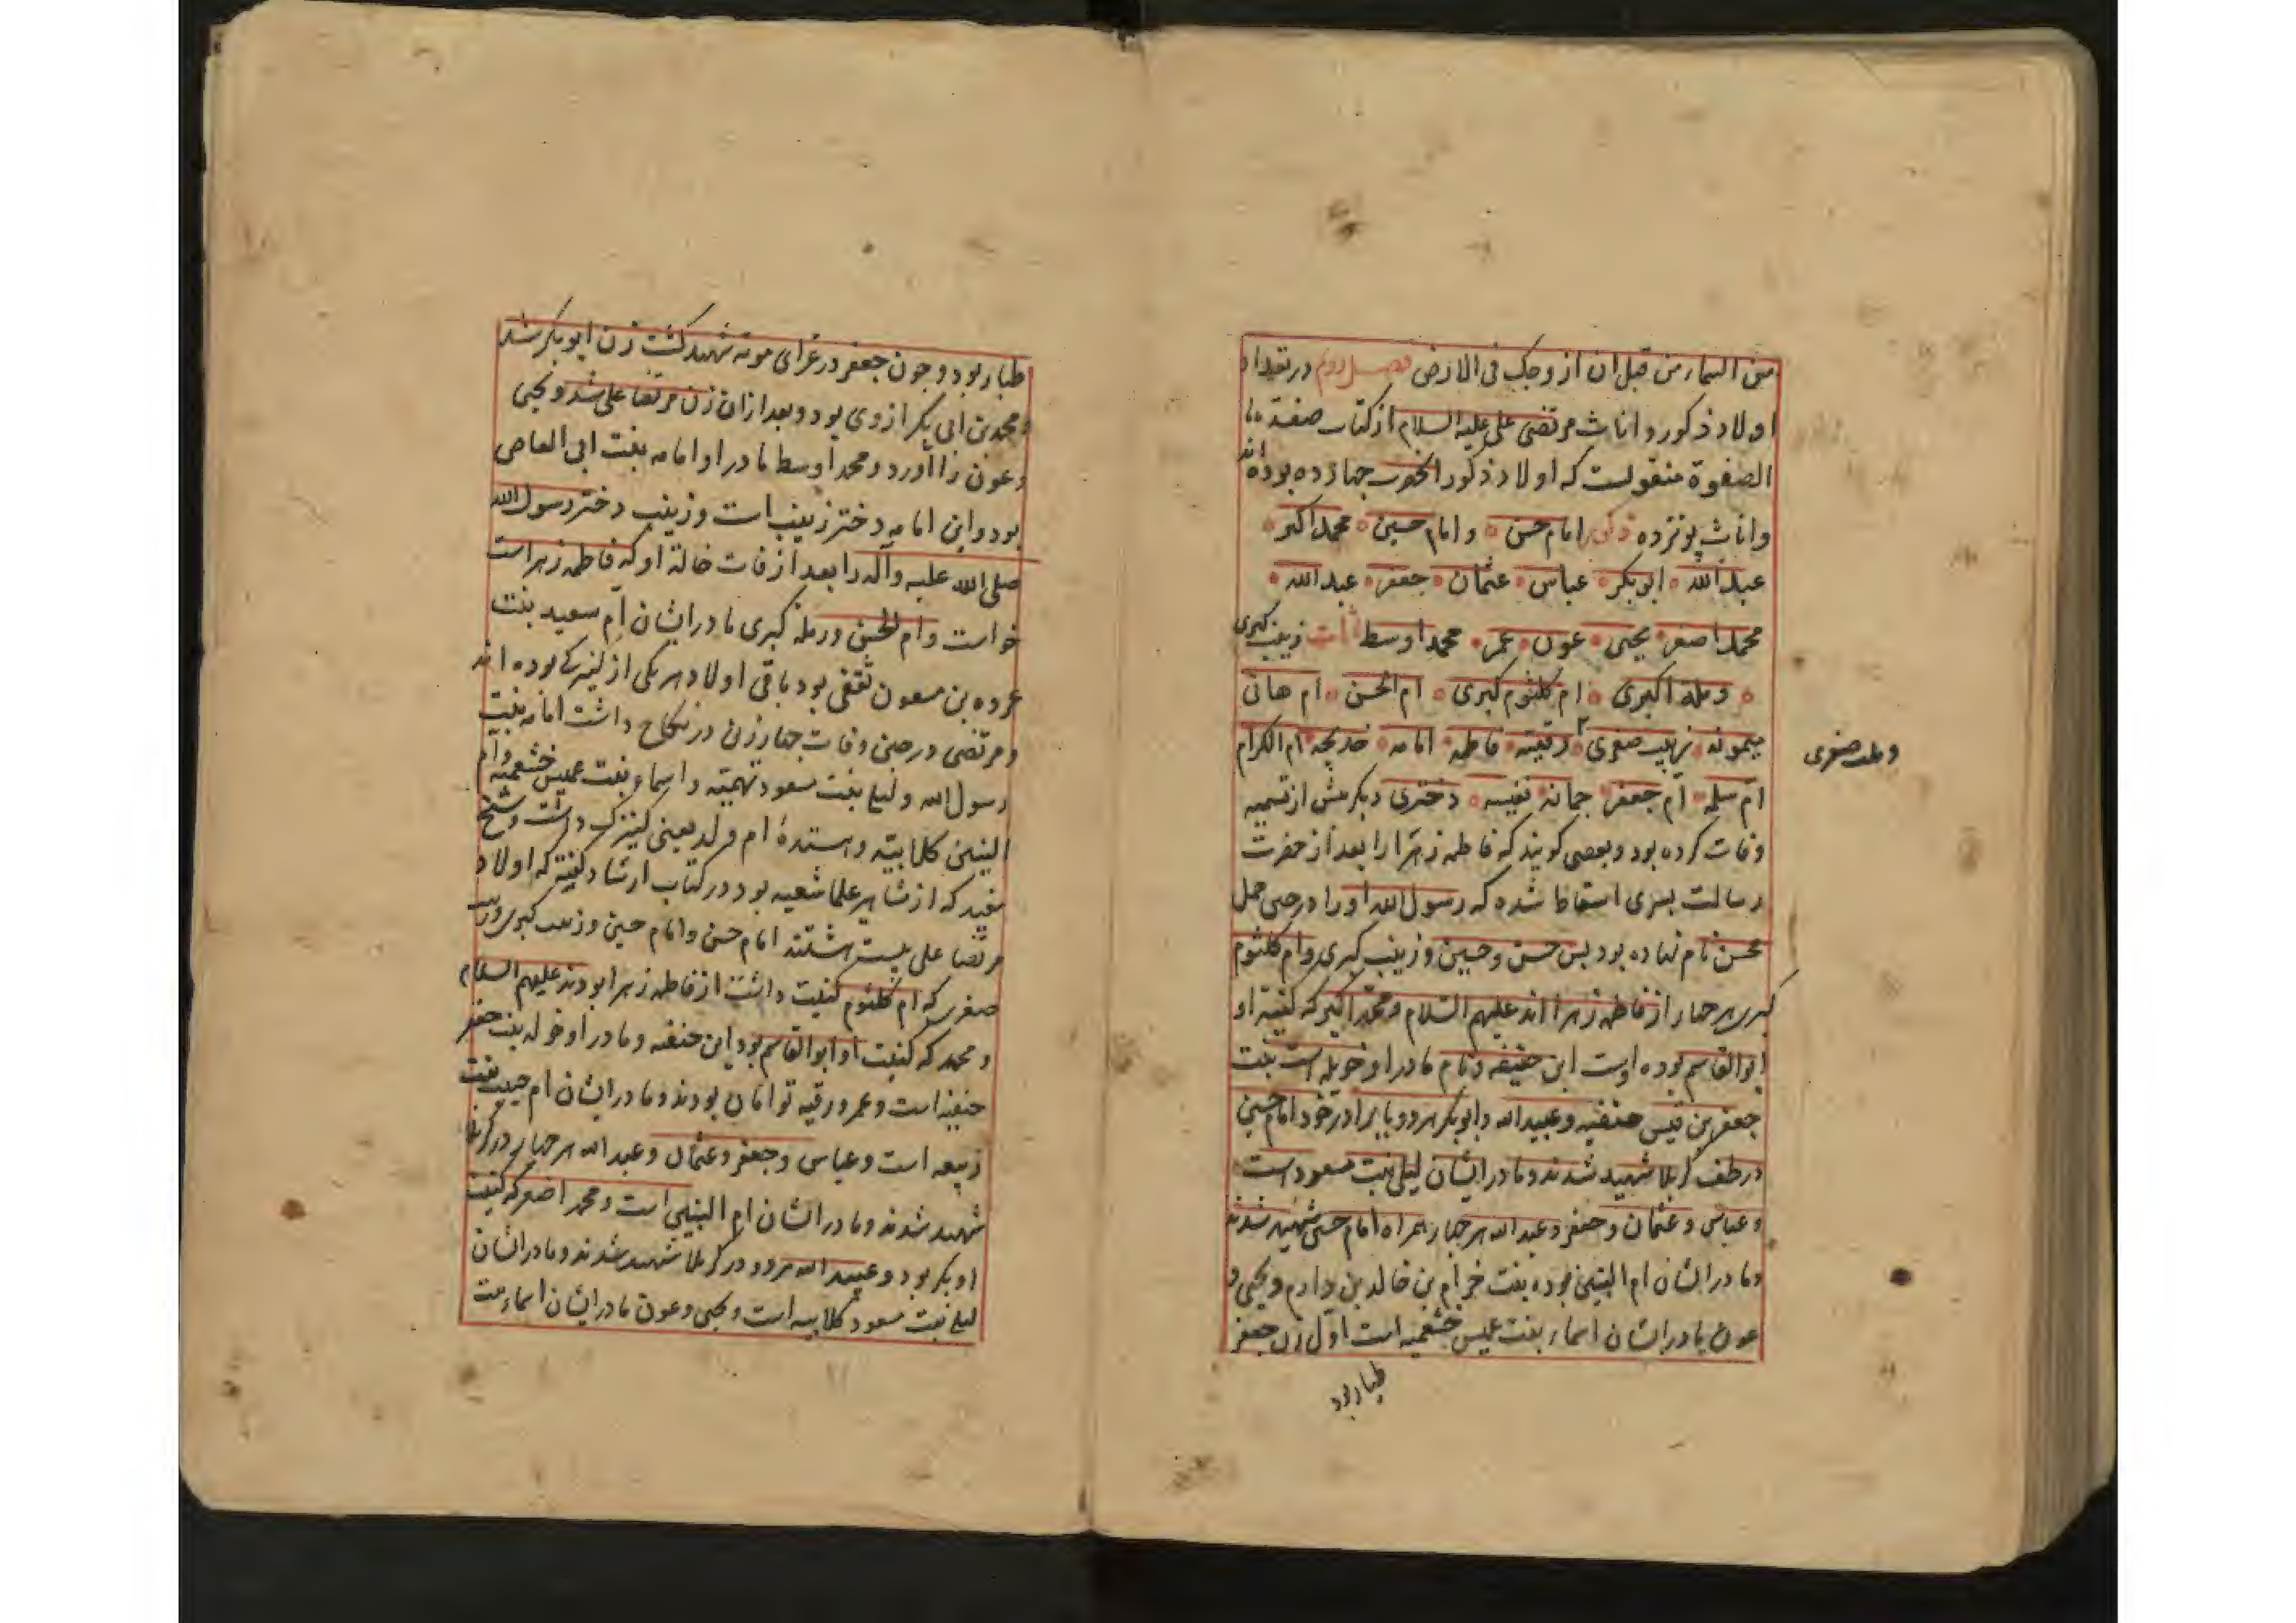 من السماء من قبل ان ازوجک فی الارض فصل دوم در تعداد
اولاد ذکور و اناث مرتضی علی علیه السلام از کتاب صفة
الصفوة منقولست که اولاد ذکور انحضرت چهارده بوده اند
واناث پونزده ذکور امام حسن و امام حسین محمد اکبر
عبد الله ابوبکر عباس عثمان جعفر عبد الله
محمد اصغر یحیی عون عمر محمد اوسط اناث زینب کبری
رملة اکبری ام کلثوم کبری ام الحسن ام هانی
میمونه زینب صغری رقیته فاطمه امامه خدیجه ام الکرام
ورمله صغری
ام سلمه ام جعفر جمانه نفیسه دختری دیگر پیش از تسمیه
وفات کرده بود و بعضی کویند که فاطمه زهرا را بعد از حضرت
رسالت پسری اسقاط شده که رسول الله او را در حین حمل
محسن نام نهاده بود پس حسن و حسین و زینب کبری و ام کلثوم
کبری هر چهار از فاطمه زهرا اند علیهم السلام و محمد اکبر که کنیته او
ابوالقاسم بوده اوست ابن حنیفه و نام مادر او خویله است بنت
جعفر بن قیس حنفیه و عبید الله و ابوبکر هر دو با برادر خود امام حسین
در طف کربلا شهید شدند و مادر ایشان لیلی بنت مسعود است
و عباس و عثمان و جعفر و عبد الله هر چهار همراه امام حسین شهید شدند
و مادر ایشان ام البنین بوده بنت خرام بن خالد بن دارم و یحیی و
عون مادر ایشان اسماء بنت عمیس خشعمیه است اول زن جعفر
طیار بود
طیار بود و چون جعفر در غزای موته شهید کشت زن ابوبکر شد
و محمد بن ابی بکر از وی بود و بعد از ان زن مرتضا علی شد و یحیی
وعون زا آورد و محمد اوسط مادر او امامه بنت ابی العاص
بود و این امامه دختر زینب است و زینب دختر رسول الله
صلی الله علیه وآله را بعد از فات خالهٔ او که فاطمه زهراست
خواست وام الحسن و رمله کبری مادر ایشان ام سعید بنت
عروه بن مسعون ثقفی بود باقی اولاد هر یکی از کنیزکی بوده اند
و مرتضی در حین وفات چهار زن در نکاح داشت امامه بنت
رسول الله و لیلی بنت مسعود تهمیته و اسماء بنت عمیس خشعمیه وام
البنین کلابیته و هستدهٔ ام ولد یعنی کنیزک داشت و شیخ
مفید که از مشاهیر علما شعیه بود در کتاب ارشاد کفته که اولاد
مرتضا علی بیست هشتند امام حسن و امام حسین و زینب کبری و زینب
صغری که ام کلثوم کنیت داشت از فاطمه زهرا بودند علیهم السلام
و محمد که کنیت او ابوالقاسم بود ابن حنفه و مادر او خوله بنت جعفر
حنفیه است و عمر و رقیه توامان بودند و مادر ایشان ام حبیب بنت
زبیعه است و عباس و جعفر و عثمان و عبد الله هر چهار در کربلا
شهید شدند و مادر ایشان ام البنین است و محمد اصغر که کنیت
او بکر بود و عبید الله هر دو در کربلا شهید شدند و مادر ایشان
لیلی بنت مسعود کلابیه است و یحیی و عون مادر ایشان اسماء بنت